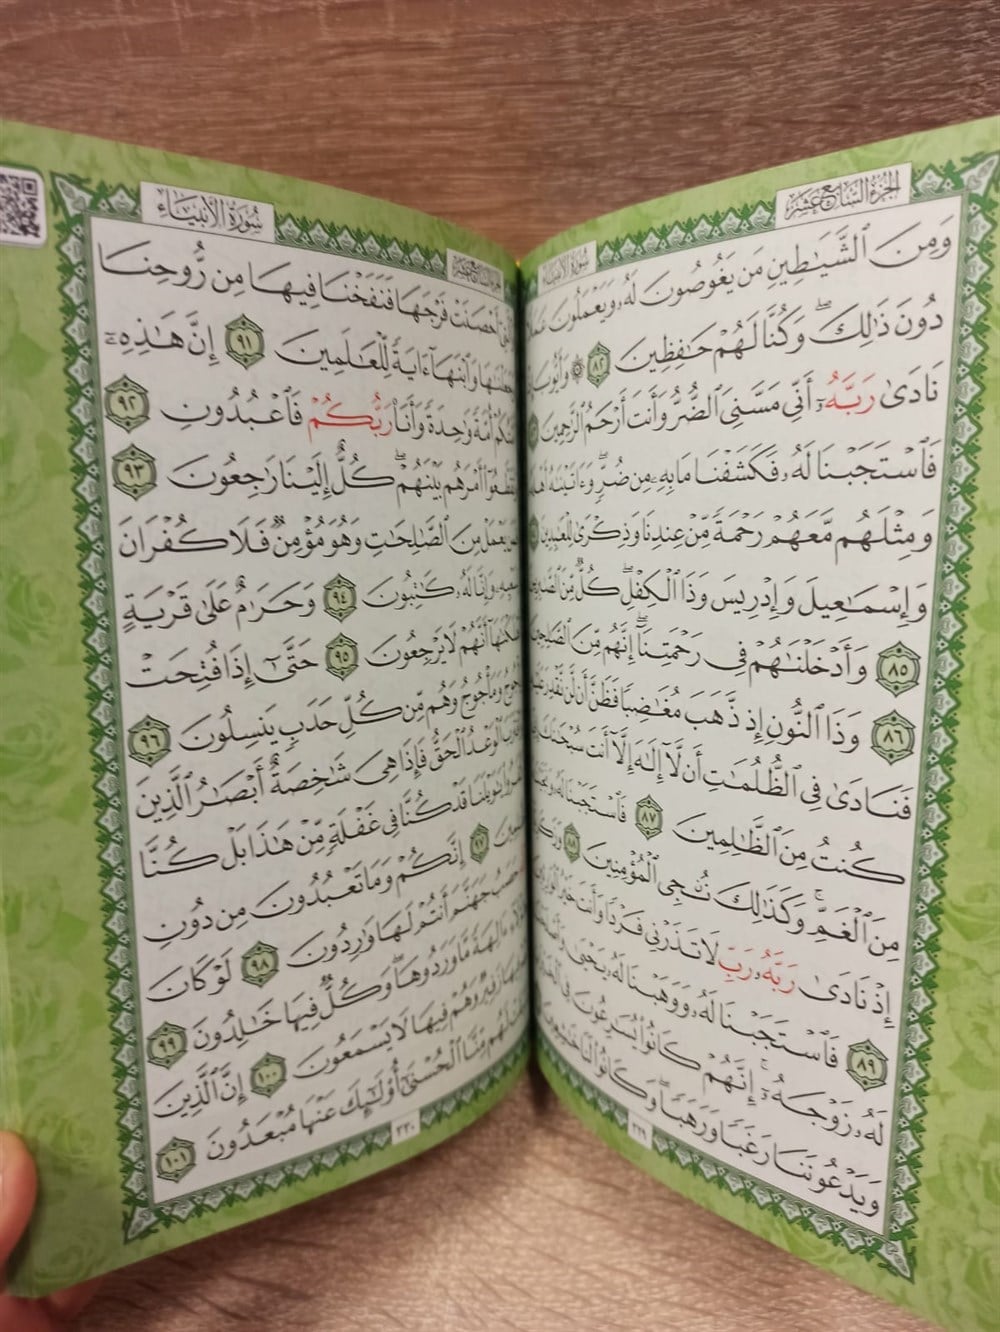 الجزء السابع عشر
سورة الأنبياء
وَمِنَ ٱلشَّيَٰطِينِ مَن يَغُوصُونَ لَهُۥ وَيَعْمَلُونَ عَمَلًا
دُونَ ذَٰلِكَ ۖ وَكُنَّا لَهُمْ حَٰفِظِينَ ٨٢ ۞ وَأَيُّوبَ
نَادَىٰ رَبَّهُۥٓ أَنِّى مَسَّنِىَ ٱلضُّرُّ وَأَنتَ أَرْحَمُ ٱلرَّٰحِمِينَ
فَٱسْتَجَبْنَا لَهُۥ فَكَشَفْنَا مَا بِهِۦ مِن ضُرٍّ ۖ وَءَاتَيْنَٰهُ أَهْلَهُۥ
وَمِثْلَهُم مَّعَهُمْ رَحْمَةً مِّنْ عِندِنَا وَذِكْرَىٰ لِلْعَٰبِدِينَ
وَإِسْمَٰعِيلَ وَإِدْرِيسَ وَذَا ٱلْكِفْلِ ۖ كُلٌّ مِّنَ ٱلصَّٰبِرِينَ
٨٥ وَأَدْخَلْنَٰهُمْ فِى رَحْمَتِنَآ ۖ إِنَّهُم مِّنَ ٱلصَّٰلِحِينَ
٨٦ وَذَا ٱلنُّونِ إِذ ذَّهَبَ مُغَٰضِبًا فَظَنَّ أَن لَّن نَّقْدِرَ عَلَيْهِ
فَنَادَىٰ فِى ٱلظُّلُمَٰتِ أَن لَّآ إِلَٰهَ إِلَّآ أَنتَ سُبْحَٰنَكَ
كُنتُ مِنَ ٱلظَّٰلِمِينَ ٨٧ فَٱسْتَجَبْنَا لَهُۥ
مِنَ ٱلْغَمِّ ۚ وَكَذَٰلِكَ نُۨجِى ٱلْمُؤْمِنِينَ ٨٨
إِذْ نَادَىٰ رَبَّهُۥ رَبِّ لَا تَذَرْنِى فَرْدًا وَأَنتَ خَيْرُ ٱلْوَٰرِثِينَ
٨٩ فَٱسْتَجَبْنَا لَهُۥ وَوَهَبْنَا لَهُۥ يَحْيَىٰ
لَهُۥ زَوْجَهُۥٓ ۚ إِنَّهُمْ كَانُوا۟ يُسَٰرِعُونَ فِى
وَيَدْعُونَنَا رَغَبًا وَرَهَبًا ۖ وَكَانُوا۟ لَنَا خَٰشِعِينَ
٣٢٩
الجزء السابع عشر
سورة الأنبياء
أَحْصَنَتْ فَرْجَهَا فَنَفَخْنَا فِيهَا مِن رُّوحِنَا
وَجَعَلْنَٰهَا وَٱبْنَهَآ ءَايَةً لِّلْعَٰلَمِينَ ٩١ إِنَّ هَٰذِهِۦٓ
أُمَّةً وَٰحِدَةً وَأَنَا۠ رَبُّكُمْ فَٱعْبُدُونِ ٩٢
وَتَقَطَّعُوٓا۟ أَمْرَهُم بَيْنَهُمْ ۖ كُلٌّ إِلَيْنَا رَٰجِعُونَ ٩٣
يَعْمَلْ مِنَ ٱلصَّٰلِحَٰتِ وَهُوَ مُؤْمِنٌ فَلَا كُفْرَانَ
وَإِنَّا لَهُۥ كَٰتِبُونَ ٩٤ وَحَرَٰمٌ عَلَىٰ قَرْيَةٍ
أَنَّهُمْ لَا يَرْجِعُونَ ٩٥ حَتَّىٰٓ إِذَا فُتِحَتْ
وَمَأْجُوجُ وَهُم مِّن كُلِّ حَدَبٍ يَنسِلُونَ ٩٦
ٱلْوَعْدُ ٱلْحَقُّ فَإِذَا هِىَ شَٰخِصَةٌ أَبْصَٰرُ ٱلَّذِينَ
يَٰوَيْلَنَا قَدْ كُنَّا فِى غَفْلَةٍ مِّنْ هَٰذَا بَلْ كُنَّا
٩٧ إِنَّكُمْ وَمَا تَعْبُدُونَ مِن دُونِ
حَصَبُ جَهَنَّمَ أَنتُمْ لَهَا وَٰرِدُونَ ٩٨ لَوْ كَانَ
ءَالِهَةً مَّا وَرَدُوهَا ۖ وَكُلٌّ فِيهَا خَٰلِدُونَ ٩٩
زَفِيرٌ وَهُمْ فِيهَا لَا يَسْمَعُونَ ١٠٠ إِنَّ ٱلَّذِينَ
لَهُم مِّنَّا ٱلْحُسْنَىٰٓ أُو۟لَٰٓئِكَ عَنْهَا مُبْعَدُونَ ١٠١
٣٣٠